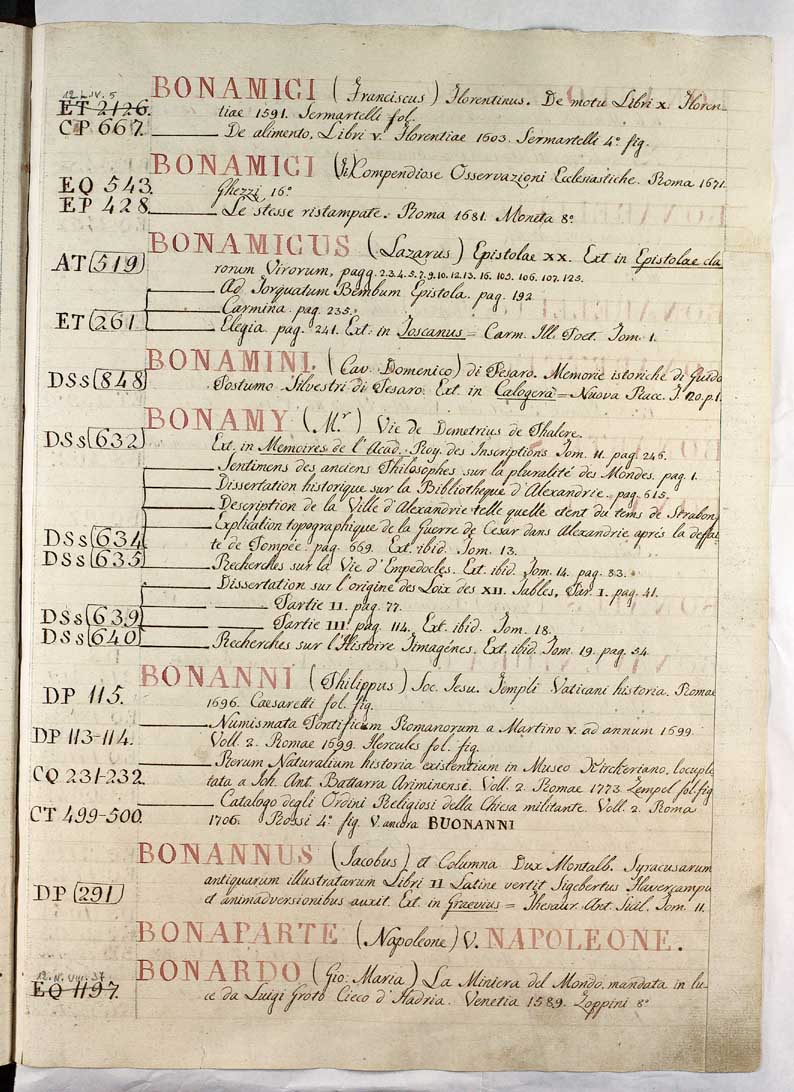 12. L. IV. 5
BONAMICI (Franciscus) Florentinus. De motu Libri X. Floren-
ET 2126. tiae 1591. Sermartelli fol.
CP 667. De alimento, Libri V. Florentiae 1603. Sermartelli 4º fig.
BONAMICI Compendiose Osservazioni Ecclesiastiche. Roma 1671.
EQ 543. Ghezzi 16º
EP 428. Le stesse ristampate. Roma 1681. Moneta 8º
BONAMICUS (Lazarus) Epistolae XX. Ext in Epistolae cla
AT 519 rorum Virorum, pagg. 2.3.4.5.7.9.10.12.13.16.105.106.107.123.
Ad Torquatum Bembum Epistola. pag. 192
Carmina. pag. 235.
ET 261 Elegia pag. 241. Ext: in Toscanus = Carm. Ill. Poet. Tom. 1.
BONAMINI. (Cav. Domenico) di Pesaro. Memorie istoriche di Guido
DSs 848 Postumo Silvestri di Pesaro. Ext. in Calogerà = Nuova Racc. T. 20. p. 1.
BONAMY (M.r) Vie de Demetrius de Phalere.
DSs 632 Ext. in Memoires de l'Acad. Roy. des Inscriptions Tom. 11. pag. 246.
Sentimens des anciens Philosophes sur la pluralité des Mondes. pag. 1.
Dissertation historique sur la Bibliotheque d'Alexandrie. pag. 615.
Description de la Ville d'Alexandrie telle quelle etent du tems de Strabon,
Explication topographique de la Guerre de Cesar dans Alexandrie aprés la deffai-
DSs 634 te de Pompée. pag. 669. Ext. ibid. Tom. 13.
DSs 635 Recherches sur la Vie d'Empedocles. Ext. ibid. Tom. 14. pag. 83.
Dissertation sur l'origine des Loix des XII. Tables, Par. I. pag. 41.
Partie II. pag. 77.
DSs 639 Partie III. pag. 114. Ext. ibid. Tom. 18.
DSs 640 Recherches sur l'Histoire Timagènes. Ext. ibid. Tom. 19. pag. 54.
BONANNI (Philippus) Soc. Iesu. Templi Vaticani historia. Romae
DP 115. 1696. Caesarelli fol. fig.
Numismata Pontificum Romanorum a Martino V. ad annum 1699.
DP 113-114. Voll. 2. Romae 1699. Hercules fol. fig.
Rerum Naturalium historia existentium in Museo Kirckeriano, locuple
CQ 231-232. tata a Joh. Ant. Battarra Ariminense. Voll. 2. Romae 1773 Zempel fol. fig
Catalogo degli Ordini Religiosi della Chiesa militante. Voll. 2. Roma
CT 499-500. 1706. Rossi 4º fig. V. ancora BUONANNI
BONANNUS (Jacobus) et Columna Dux Montalb. Syracusarum
antiquarum illustratarum Libri II Latine vertit Sigebertus Havercampu
DP 291 et animadversionibus auxit. Ext in Graevius = Thesaur. Ant. Sicil. Tom. 11.
BONAPARTE (Napoleone) V. NAPOLEONE.
12. N. VIII. 37
BONARDO (Gio: Maria) La Miniera del Mondo, mandata in lu-
EQ 1197. ce da Luigi Groto Cieco d'Hadria. Venetia 1589. Zoppini 8º